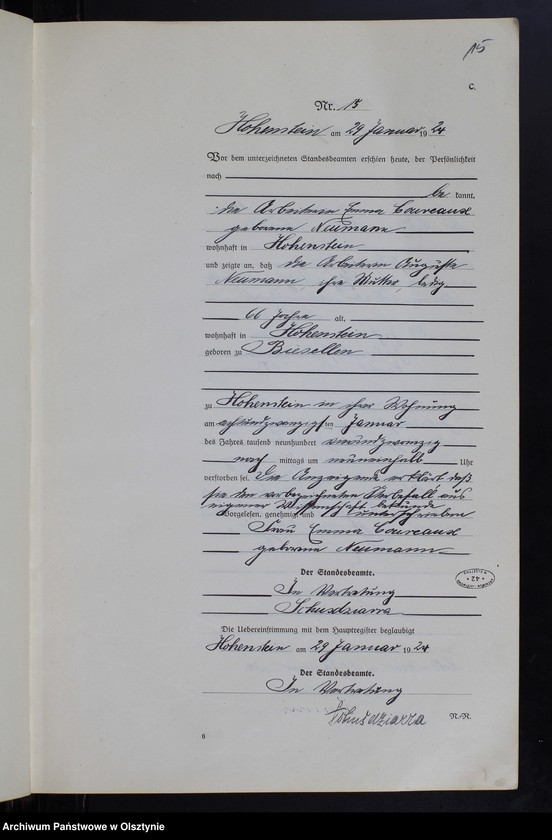 15
C.
Nr. 15
Hohenstein am 29 Januar 1924
Vor dem unterzeichneten Standesbeamten erschien heute, der Persönlichkeit
nach
be kannt,
die Arbeiterin Emma Coureaux
geborene Neumann
wohnhaft in Hohenstein
und zeigte an, daß die Arbeiterin Auguste
Neumann, ihre Mutter, ledig
66 Jahre alt,
wohnhaft in Hohenstein
geboren zu Biesellen
zu Hohenstein in ihrer Wohnung
am achtundzwanzigsten Januar
des Jahres tausend neunhundert vierundzwanzig
nach mittags um neuneinhalb Uhr
verstorben sei. Die Anzeigende erklärt daß
sie den vorbezeichneten Sterbefall aus
eigener Wissenschaft bekunde
Vorgelesen, genehmigt und unterschrieben
Frau Emma Coureaux
geborene Neumann
Der Standesbeamte.
In Vertretung
Schusdziarra
Die Uebereinstimmung mit dem Hauptregister beglaubigt
Hohenstein am 29 Januar 1924
Der Standesbeamte.
In Vertretung
Schusdziarra
N.-R.
6
Archiwum Państwowe w Olsztynie